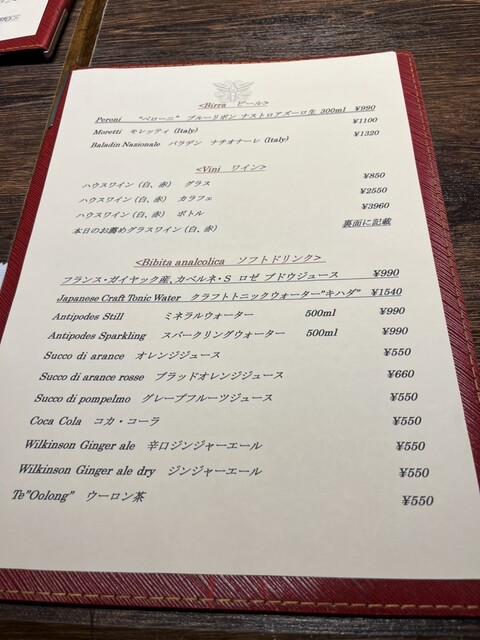 <Birra　ビール>
Peroni　"ペローニ"　ブルーリボン ナストロアズーロ生 300ml　¥990
Moretti　モレッティ (Italy)　¥1100
Baladin Nasionale　バラデン　ナチオナーレ (Italy)　¥1320
<Vini　ワイン>
ハウスワイン (白、赤)　グラス　¥850
ハウスワイン (白、赤)　カラフェ　¥2550
ハウスワイン (白、赤)　ボトル　¥3960
本日のお薦めグラスワイン (白、赤)　裏面に記載
<Bibita analcolica　ソフトドリンク>
フランス・ガイヤック産, カベルネ・S　ロゼ ブドウジュース　¥990
Japanese Craft Tonic Water　クラフトトニックウォーター"キハダ"　¥1540
Antipodes Still　ミネラルウォーター　500ml　¥990
Antipodes Sparkling　スパークリングウォーター　500ml　¥990
Succo di arance　オレンジジュース　¥550
Succo di arance rosse　ブラッドオレンジジュース　¥660
Succo di pompelmo　グレープフルーツジュース　¥550
Coca Cola　コカ・コーラ　¥550
Wilkinson Ginger ale　辛口ジンジャーエール　¥550
Wilkinson Ginger ale dry　ジンジャーエール　¥550
Te"Oolong"　ウーロン茶　¥550